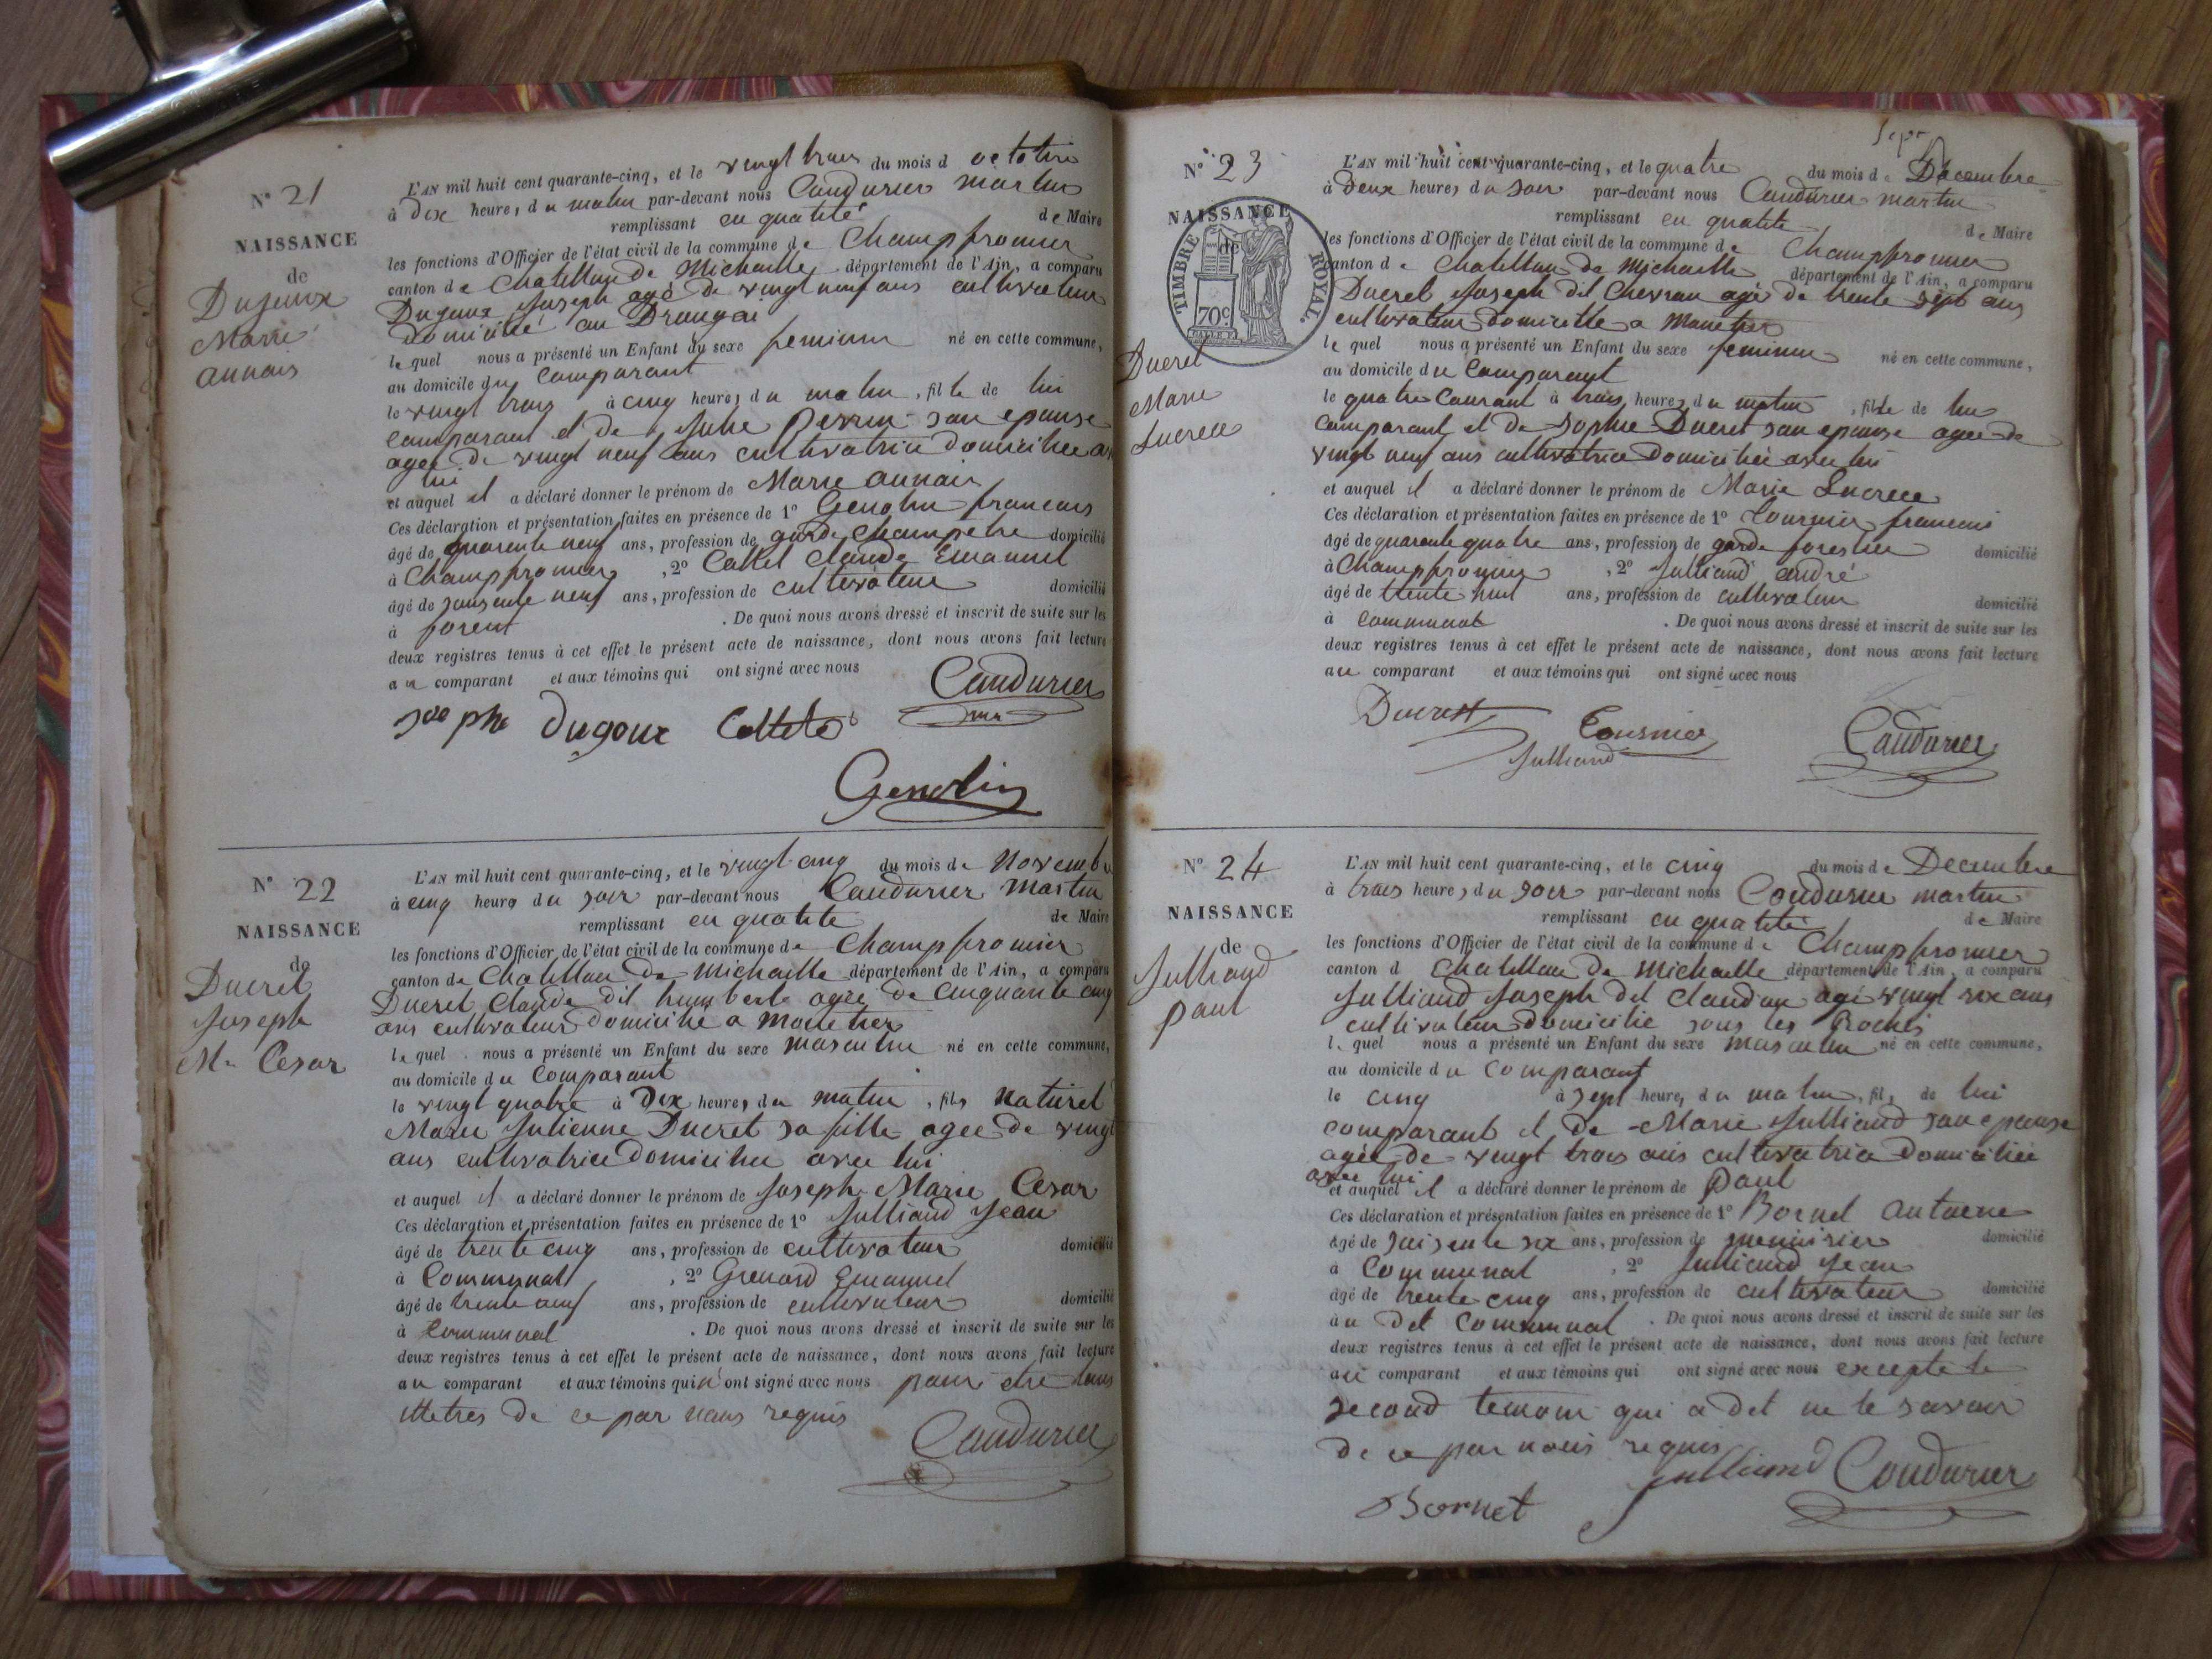 N° 21
NAISSANCE
de
Dujoux
Marie
annais
L'AN mil huit cent quarante-cinq, et le vingt trois du mois d octobre
à Dix heures du matin par-devant nous Coudurier martin
remplissant en qualité de Maire
les fonctions d'Officier de l'état civil de la commune de Champfromier
canton de Chatillon de Michaille département de l'Ain, a comparu
Dujoux Joseph agé de vingt neuf ans cultivateur
domicilié au
le quel nous a présenté un Enfant du sexe feminin né en cette commune,
au domicile du comparant
le vingt trois à cinq heures du matin, fille de lui
comparant et de Julie Perrin son epouse
agée de vingt neuf ans cultivatrice domiciliée avec
lui
et auquel il a déclaré donner le prénom de Marie annais
Ces déclaration et présentation faites en présence de 1° Genolin francois
âgé de quarente neuf ans, profession de garde Champetre domicilié
à Champfromier, 2° Collet Claude Emanuel
âgé de soixente neuf ans, profession de cultivateur domicilié
à forent. De quoi nous avons dressé et inscrit de suite sur les
deux registres tenus à cet effet le présent acte de naissance, dont nous avons fait lecture
au comparant et aux témoins qui ont signé avec nous
Coudurier
mr
Joseph Dugoux Collet
Genolin
N° 22
NAISSANCE
de
Ducret
Joseph
Me Cesar
L'AN mil huit cent quarante-cinq, et le vingt cinq du mois de Novembre
à cinq heure du soir par-devant nous Coudurier Martin
remplissant en qualité de Maire
les fonctions d'Officier de l'état civil de la commune de Champfromier
canton de Chatillon de Michaille département de l'Ain, a comparu
Ducret Claude dit humbert agée de Cinquante cinq
ans cultivateur domicilié a monetier
le quel nous a présenté un Enfant du sexe masculin né en cette commune,
au domicile du Comparant
le vingt quatre à Dix heures du matin, fils naturel
Marie Julienne Ducret sa fille agée de vingt
ans cultivatrice domiciliée avec lui
et auquel il a déclaré donner le prénom de Joseph Marie Cesar
Ces déclaration et présentation faites en présence de 1° Julliand Jean
âgé de trente cinq ans, profession de cultivateur domicilié
à Communal, 2° Grenard Emanuel
âgé de trente neuf ans, profession de cultivateur domicilié
à Communal. De quoi nous avons dressé et inscrit de suite sur les
deux registres tenus à cet effet le présent acte de naissance, dont nous avons fait lecture
au comparant et aux témoins qui n'ont signé avec nous pour etre tous
de ce par nous requis
Coudurier
N° 23
NAISSANCE
de
TIMBRE ROYAL.
70c.
Ducret
Marie
Lucrece
Sepr
L'AN mil huit cent quarante-cinq, et le quatre du mois de Décembre
à Deux heures du soir par-devant nous Coudurier martin
remplissant en qualité de Maire
les fonctions d'Officier de l'état civil de la commune de Champfromier
canton de Chatillon de Michaille département de l'Ain, a comparu
Ducret Joseph dit Chevron agé de trente sept ans
cultivateur domicillé a Monetier
le quel nous a présenté un Enfant du sexe feminin né en cette commune,
au domicile du Comparant
le quatre Courant à trois heures du matin, fille de lui
Comparant et de Sophie Ducret son epouse agée de
vingt neuf ans cultivatrice domiciliée avec lui
et auquel il a déclaré donner le prénom de Marie Lucrece
Ces déclaration et présentation faites en présence de 1° Tournier francois
âgé de quarente quatre ans, profession de garde forestier domicilié
à Champfromier, 2° Julliand andré
âgé de trente huit ans, profession de cultivateur domicilié
à communal. De quoi nous avons dressé et inscrit de suite sur les
deux registres tenus à cet effet le présent acte de naissance, dont nous avons fait lecture
au comparant et aux témoins qui ont signé avec nous
Ducret Tournier
Julliand Coudurier
N° 24
NAISSANCE
de
Julliand
paul
L'AN mil huit cent quarante-cinq, et le cinq du mois de Decembre
à trois heures du soir par-devant nous Coudurier martin
remplissant en qualité de Maire
les fonctions d'Officier de l'état civil de la commune de Champfromier
canton d Chatillon de Michaille département de l'Ain, a comparu
Julliand Joseph dit Claudon agé vingt six ans
cultivateur domicilié sous les Roches
le quel nous a présenté un Enfant du sexe masculin né en cette commune,
au domicile du comparant
le cinq à sept heures du matin, fils de lui
comparant et de Marie Julliand son epouse
agée de vingt trois ans cultivatrice domiciliée
avec lui
et auquel il a déclaré donner le prénom de Paul
Ces déclaration et présentation faites en présence de 1° Bornet antoine
âgé de soisente six ans, profession de menuisier domicilié
à Communal, 2° Julliand Jean
âgé de trente cinq ans, profession de cultivateur domicilié
au Dit Communal. De quoi nous avons dressé et inscrit de suite sur les
deux registres tenus à cet effet le présent acte de naissance, dont nous avons fait lecture
au comparant et aux témoins qui ont signé avec nous excepté le
second temoin qui a dit ne le savoir
de ce par nous requis
Julliand Coudurier
Bornet